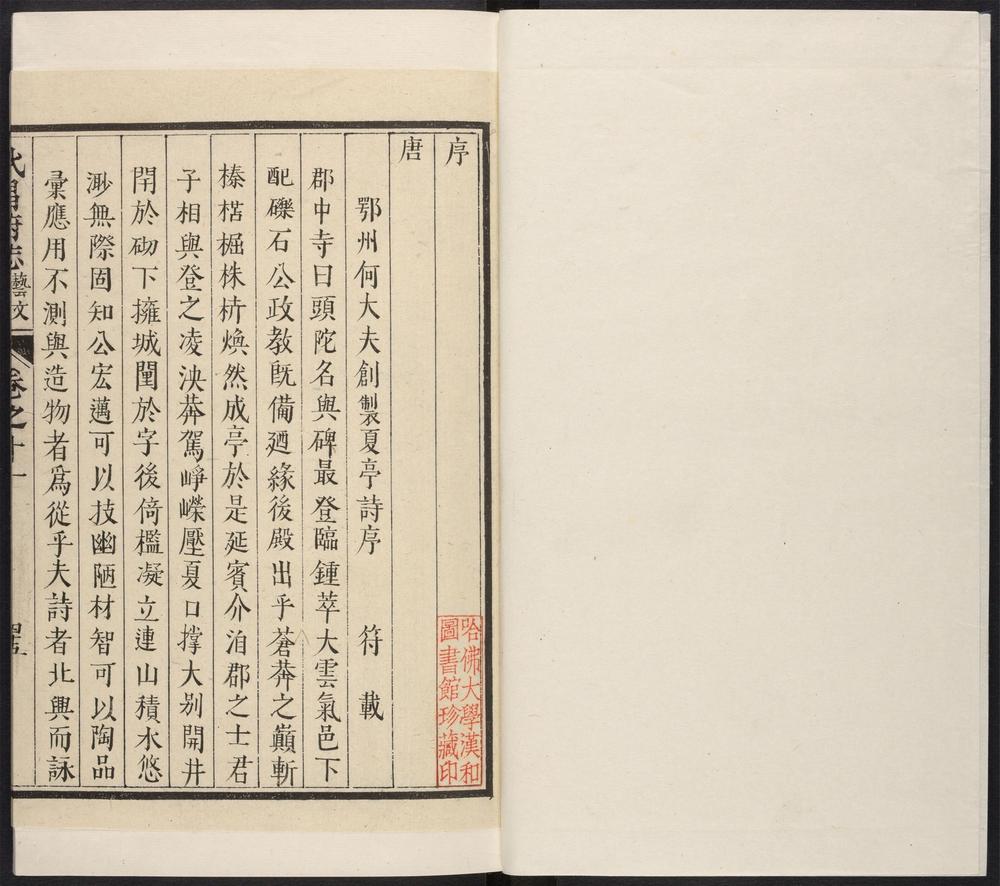 序
唐
鄂州何大夫創製夏亭詩序　符載
郡中寺曰頭陀名與碑最登臨鍾萃大雲氣邑下
配礫石公政教旣備廼緣後殿出乎蒼莽之巔斬
榛楛掘株枿煥然成亭於是延賓介洎郡之士君
子相與登之凌泱莽駕崢嶸壓夏口撑大别開井
閈於砌下擁城闉於字後倚檻凝立連山積水悠
渺無際固知公宏邁可以技幽陋材智可以陶品
彙應用不測與造物者爲從乎夫詩者北興而詠
武昌府志 藝文 卷之十一
哈佛大學漢和
圖書館珍藏印